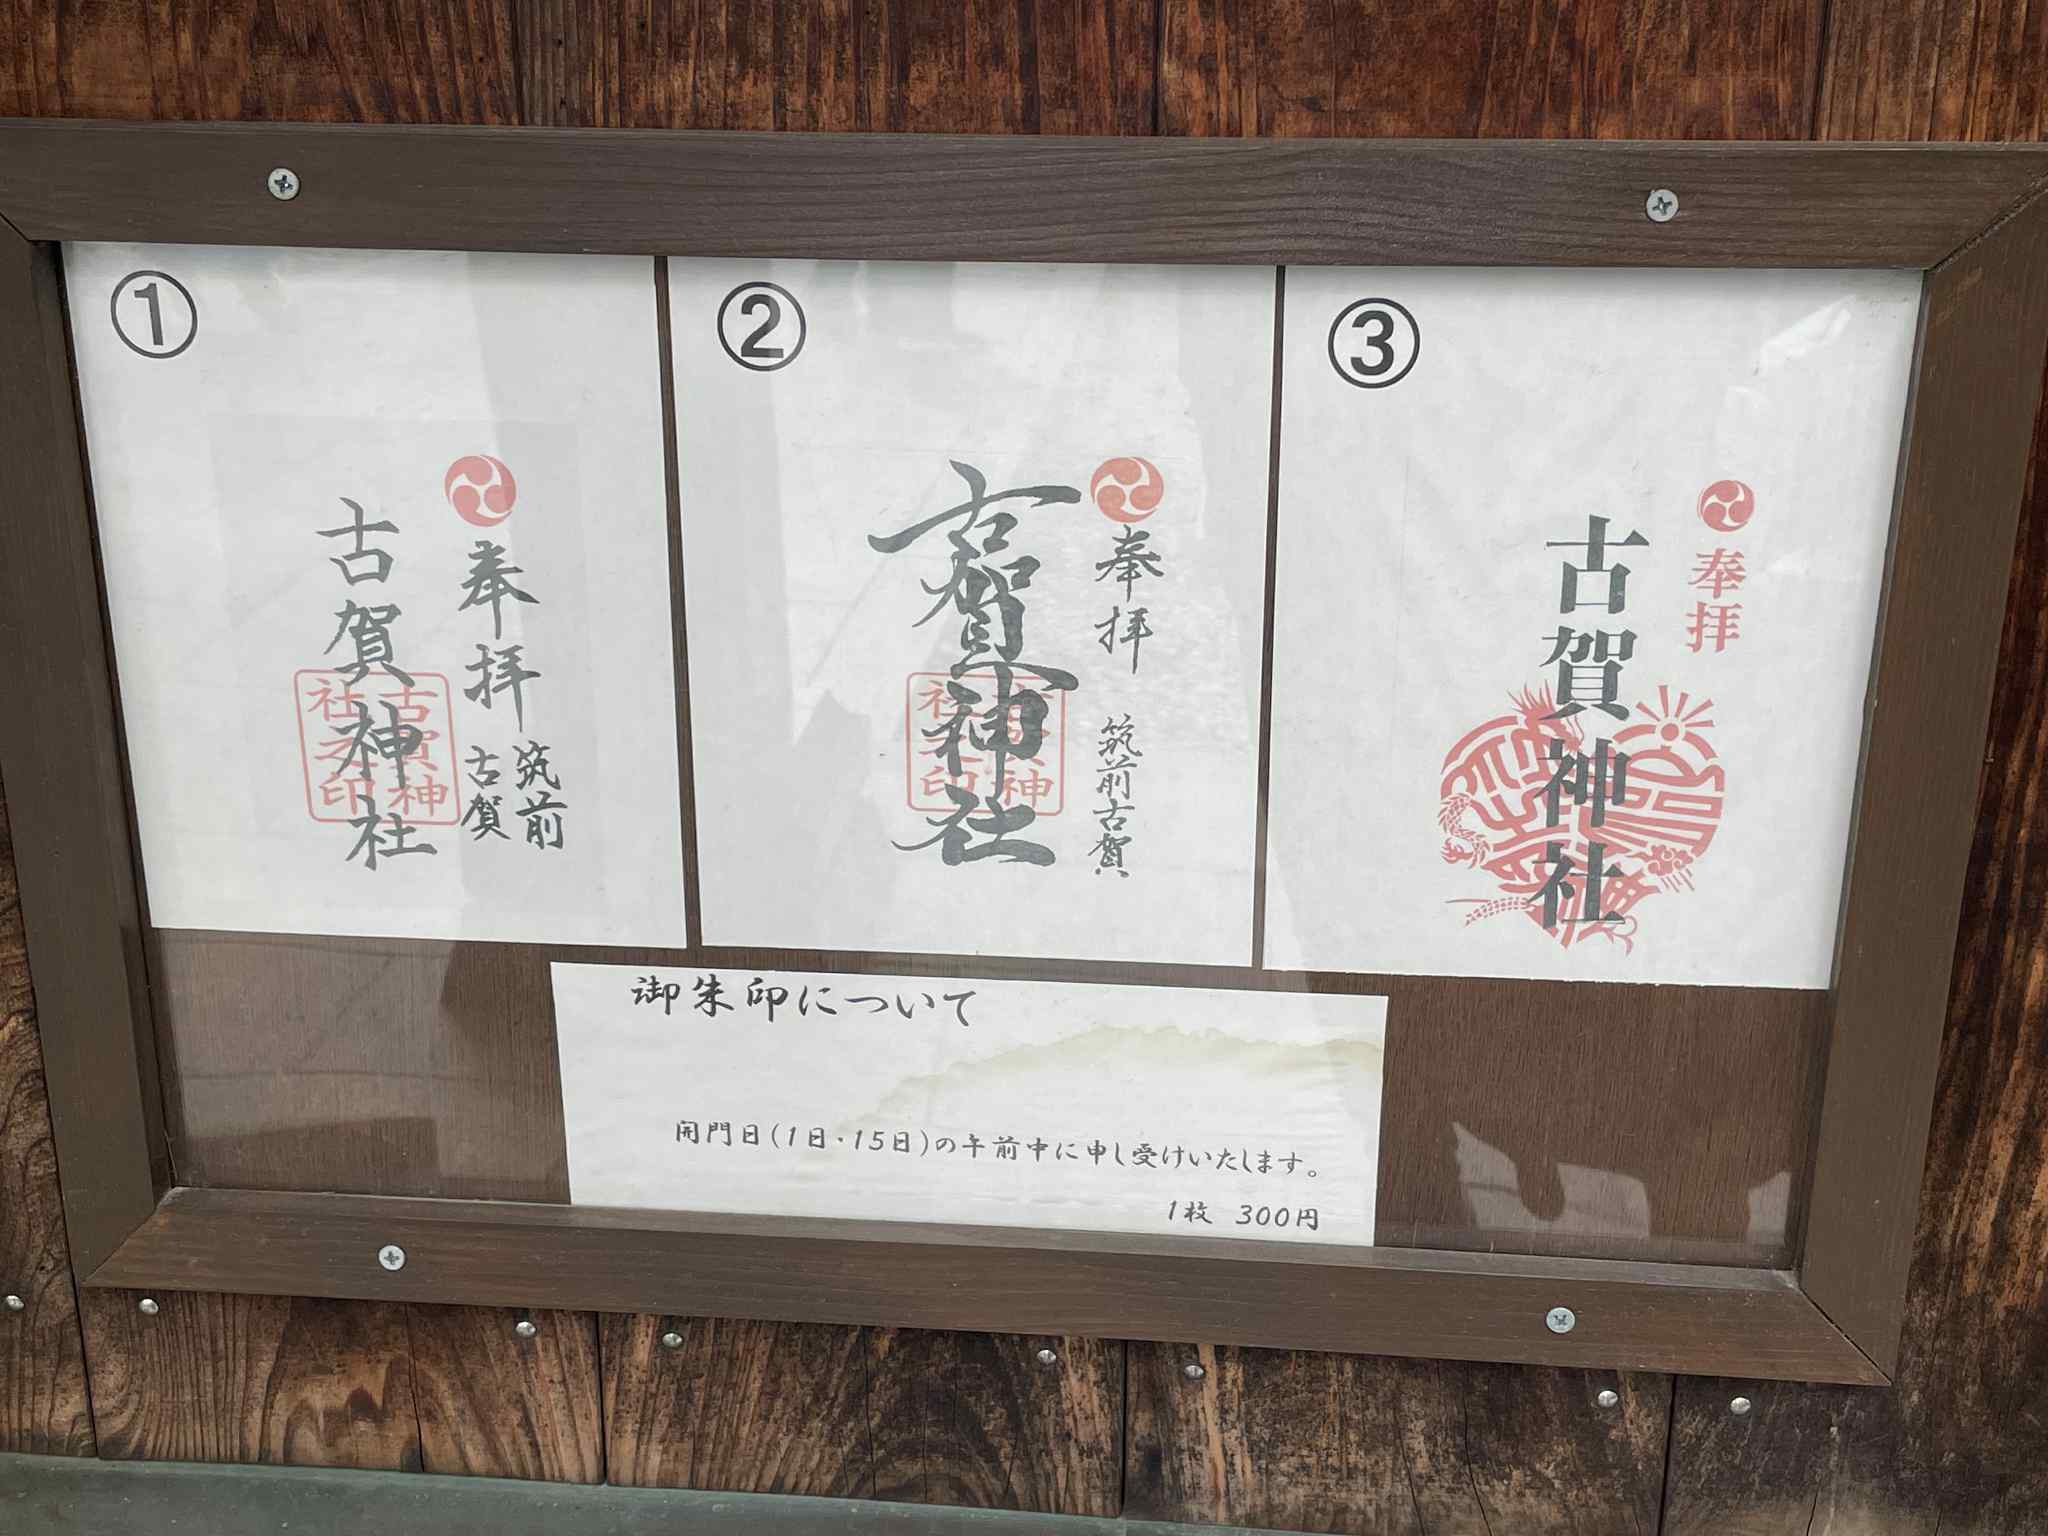 ①
奉拝
筑前
古賀
古賀神社
古賀神
社之印
②
奉拝
筑前古賀
古賀神社
古賀神
社之印
③
奉拝
古賀神社
御朱印について
開門日(1日・15日)の午前中に申し受けいたします。
1枚 300円